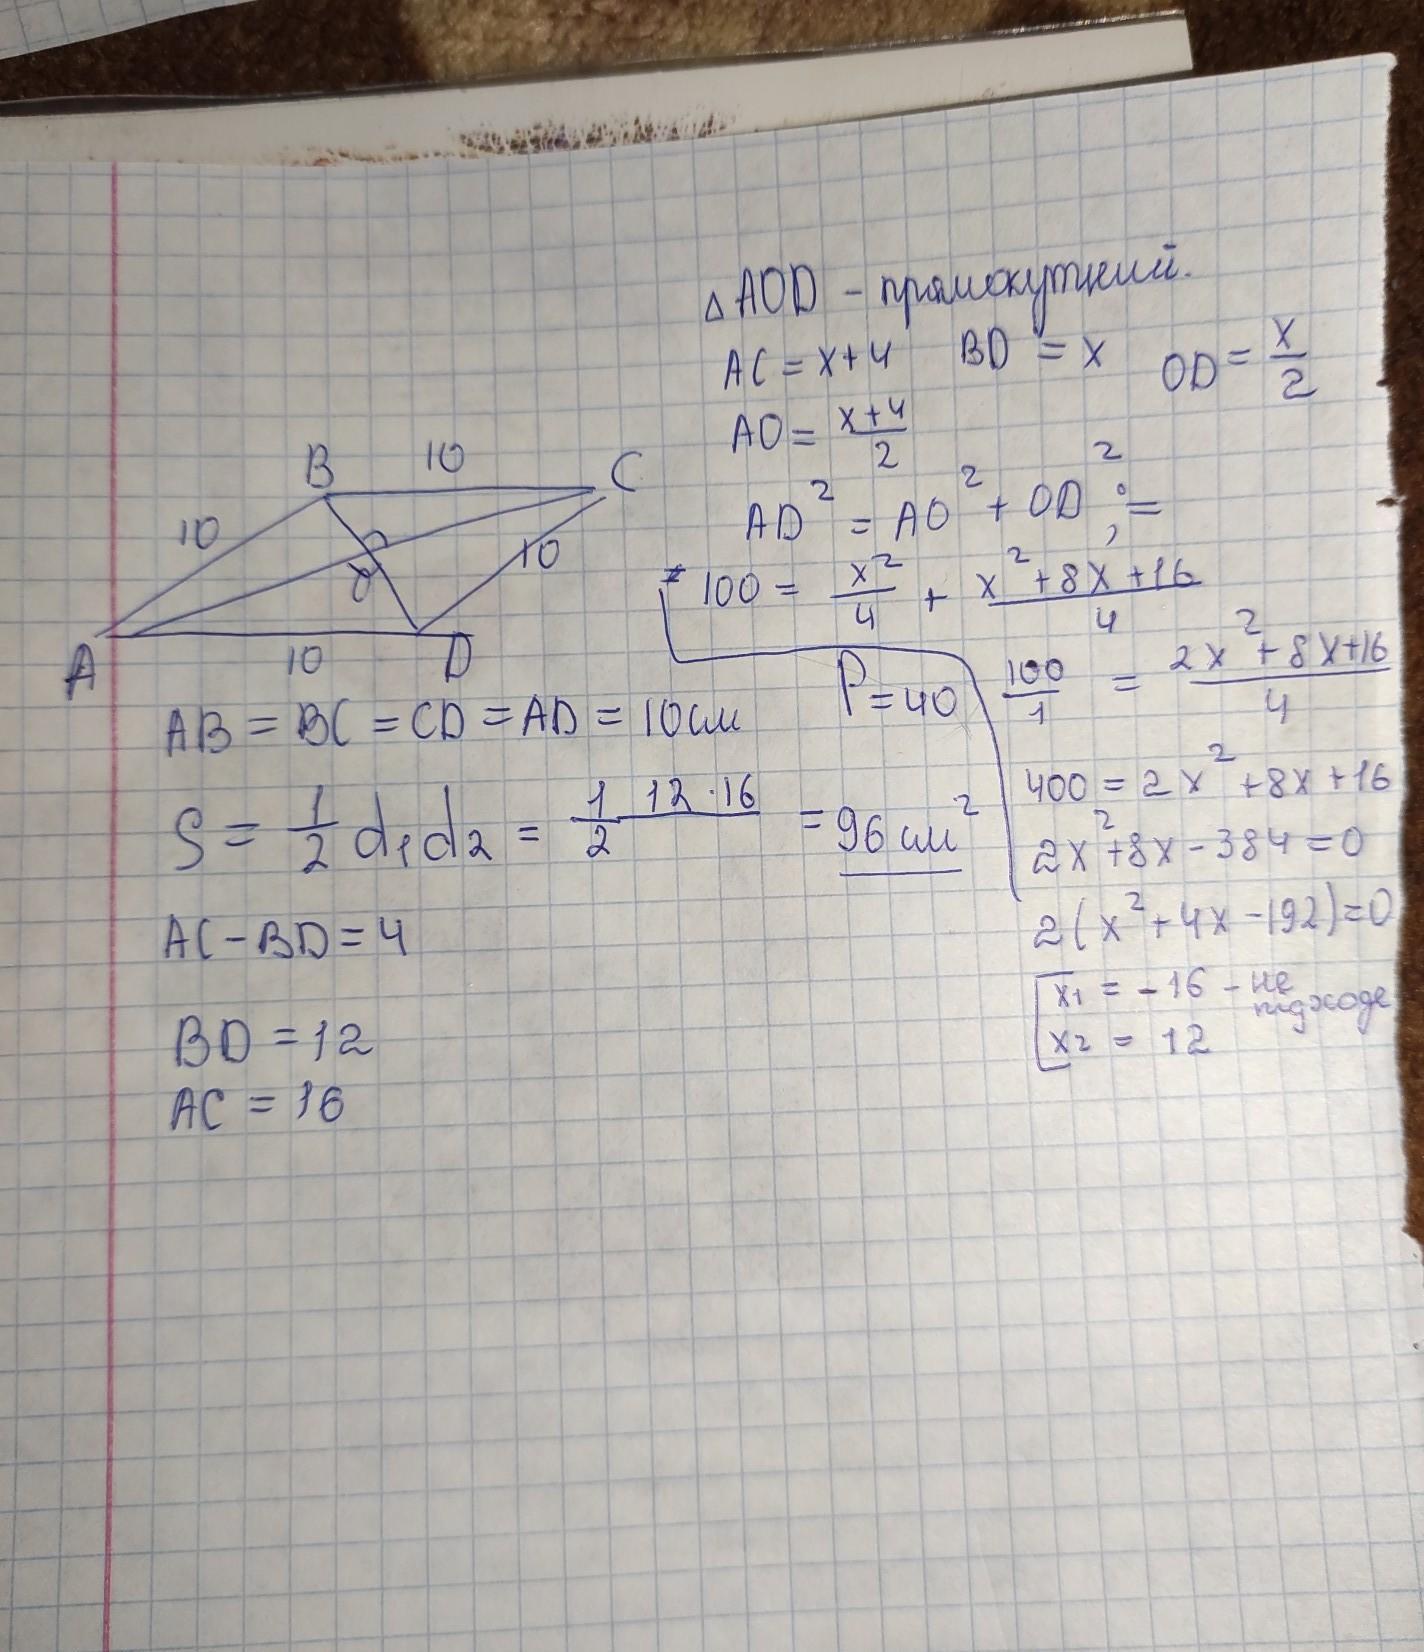 △ AOD – прямокутний.
AC = x+4 BD = x OD = x/2
AO = (x+4)/2
AD² = AO² + OD²; =
100 = x²/4 + (x²+8x+16)/4
100/1 = (2x²+8x+16)/4
400 = 2x²+8x+16
2x²+8x-384=0
2(x²+4x-192)=0
x1 = -16 - не підходе
x2 = 12
B 10 C
10
O 10
A 10 D
P=40
AB = BC = CD = AD = 10см
S = 1/2 d1d2 = 1/2 12·16 = 96 см²
AC-BD=4
BD = 12
AC = 16